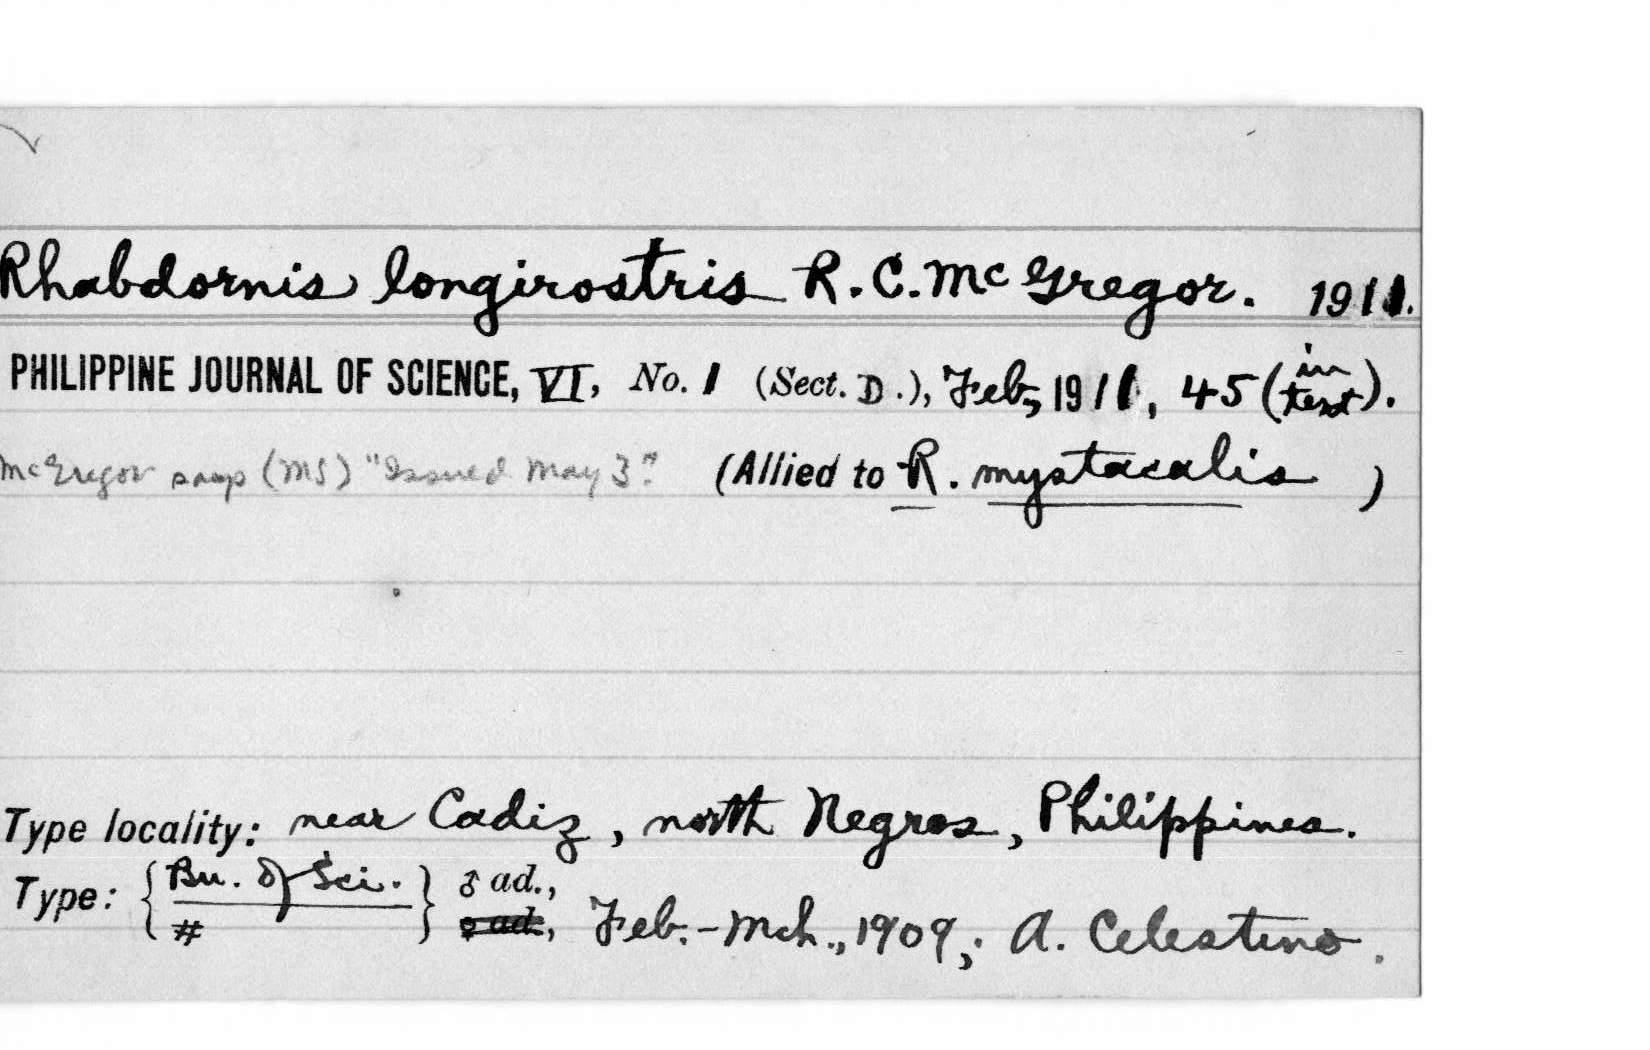 Rhabdornis longirostris R.C. McGregor. 1911.
PHILIPPINE JOURNAL OF SCIENCE, VI, No. 1 (Sect. D.), Feb., 1911, 45 (in text).
McGregor says (MS) "Issued May 3." (Allied to R. mystacalis )
Type locality: near Cadiz, north Negros, Philippines.
Type: { Bu. of Sci. } ♂ ad.,
# ♀ ad., Feb.-Mch., 1909; A. Celestino.